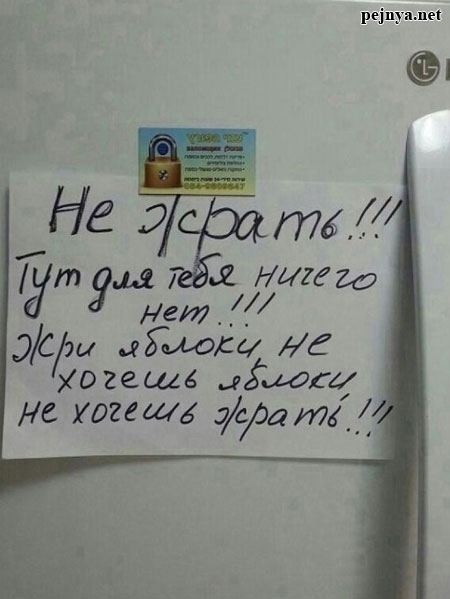 pejnya.net
LG
Не жрать!!!
Тут для тебя ничего
нет!!!
Жри яблоки, не
хочешь яблоки,
не хочешь жрать!!!